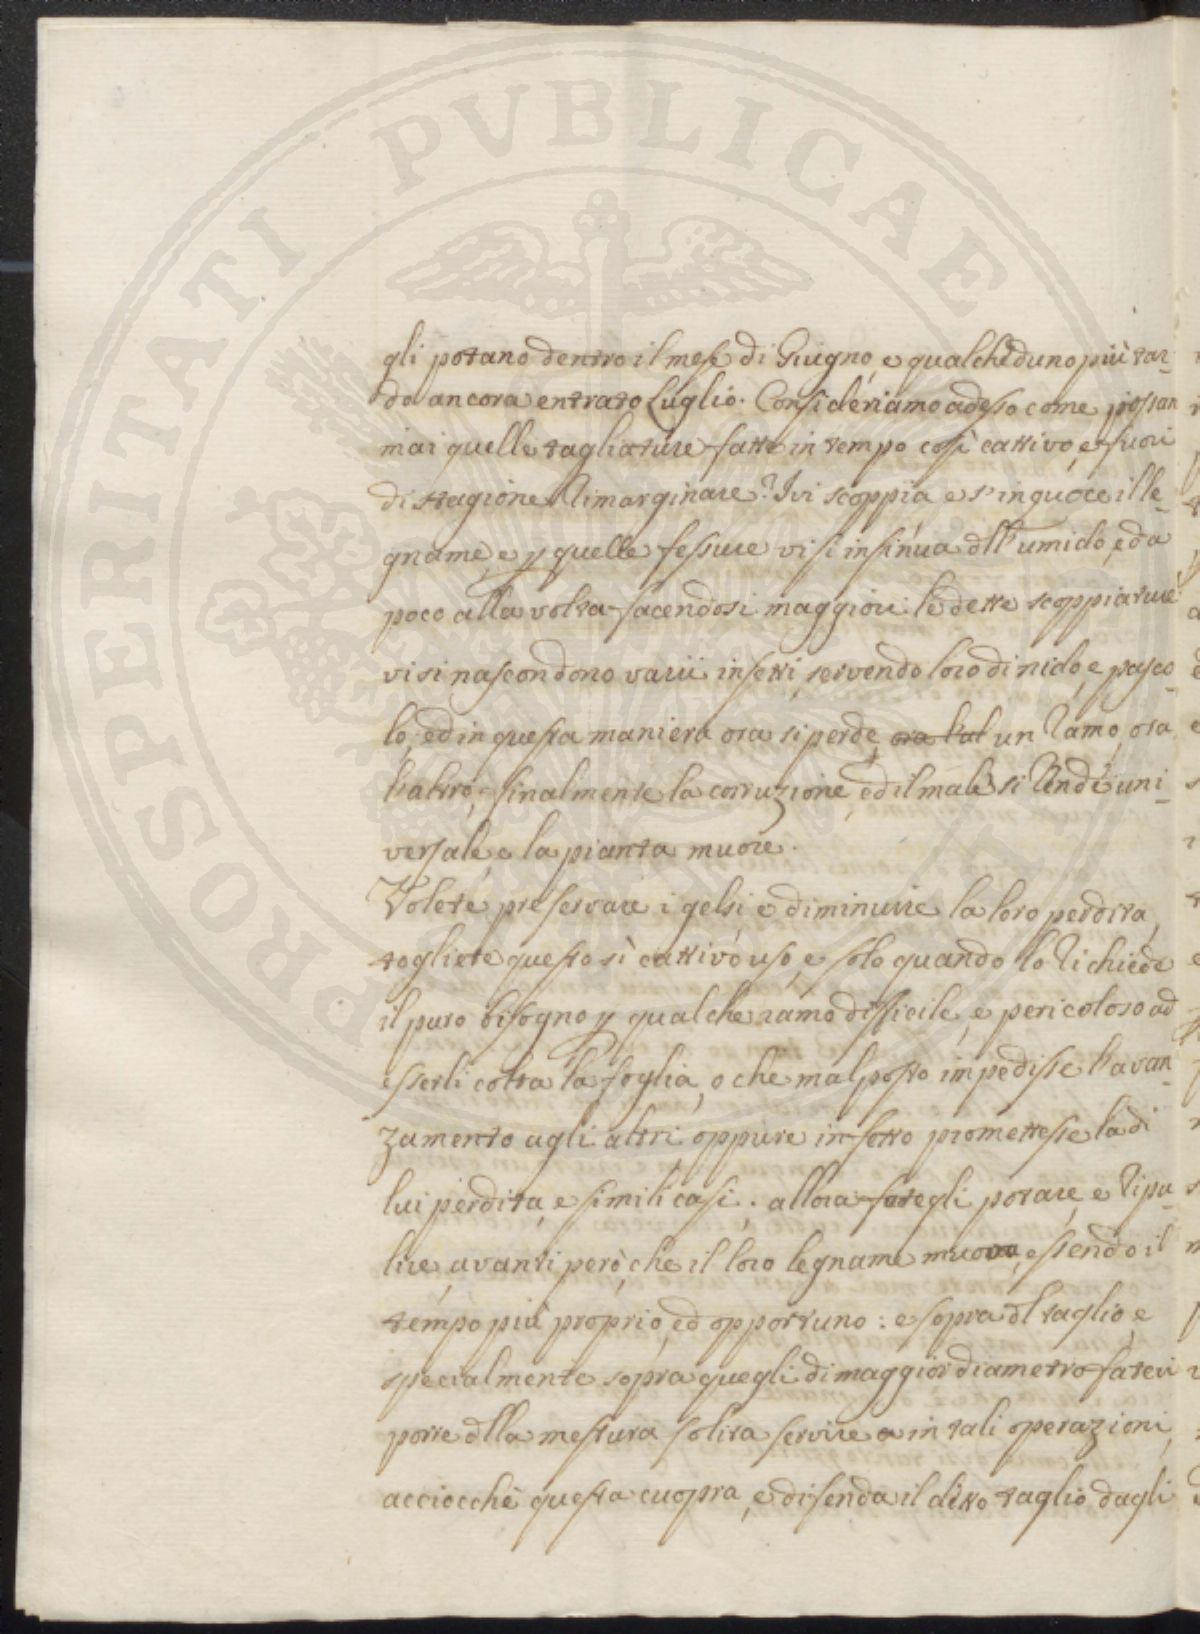 PROSPERITATI PVBLICAE
gli potano dentro il mese di Giugno, e qualcheduno più tar-
do ancora entrato Luglio. Consideriamo adesso come possan
mai quelle tagliature fatte in tempo così cattivo, e fuori
di stagione Rimarginare? Ivi scoppia e s'inquoce il le-
gname, e p quelle fessure vi si insinua dll'umido, e da
poco alla volta facendosi maggiori le dette scoppiature
vi si nascondono varii insetti, servendo loro di nido, e pasco-
lo, ed in questa maniera ora si perde, ora l'al un Ramo, ora
l'altro, finalmente la corruzione, ed il male si Rende uni-
versale, e la pianta muore.
Volete preservare i gelsi, e diminuire la loro perdita,
togliete questo sì cattivo uso, e solo quando lo Richiede
il puro bisogno p qualche ramo difficile, e pericoloso ad
esserli colta la foglia, o che mal posto impedisse l'avan-
zamento agli altri, oppure infetto promettesse la di
lui perdita, e simili casi; allora fategli potare, e Ripu-
lire, avanti però, che il loro legname muova, essendo il
tempo più proprio, ed opportuno: e sopra dl taglio, e
specialmente sopra quegli di maggior diametro fatevi
porre dlla mestura solita servire in tali operazioni,
acciocchè questa cuopra, e difenda il ditto taglio dagli